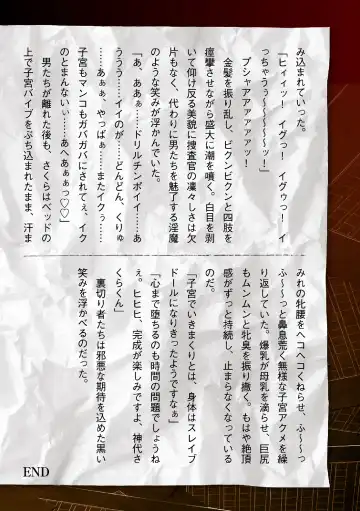 み込まれていった。
「ヒィィッ！　イグっ！　イグゥっ！　イ
っちゃうぅ～～～～～ッ！」
プシャアアアアアアアッ！
金髪を振り乱し、ビクンビクンと四肢を
痙攣させながら盛大に潮を噴く。白目を剥
いて仰け反る美貌に捜査官の凜々しさは欠
片もなく、代わりに男たちを魅了する淫魔
のような笑みが浮かんでいた。
「あ、ああぁ……ドリルチンポイイ……あ
ううう……イイのが……どんどん、くりゅ
……あぁぁ、やっぱぁ……またイクぅ……
子宮もマンコもガバガバにされてぇ、イク
のとまんないぃ……あへあぁぁっ♡♡」
男たちが離れた後も、さくらはベッドの
上で子宮バイブをぶち込まれたまま、汗ま
みれの牝腰をヘコヘコくねらせ、ふ～～っ
ふ～～っと鼻息荒く無様な子宮アクメを繰
り返していた。爆乳が母乳を滴らせ、巨尻
もムンムンと牝臭を振り撒く。もはや絶頂
感がずっと持続し、止まらなくなっている
のだ。
「子宮でいきまくりとは、身体はスレイブ
ドールになりきったようですなぁ」
「心まで堕ちるのも時間の問題でしょうね
ぇ。ヒヒヒ、完成が楽しみですよ、神代さ
くらくん」
裏切り者たちは邪悪な期待を込めた黒い
笑みを浮かべるのだった。
END